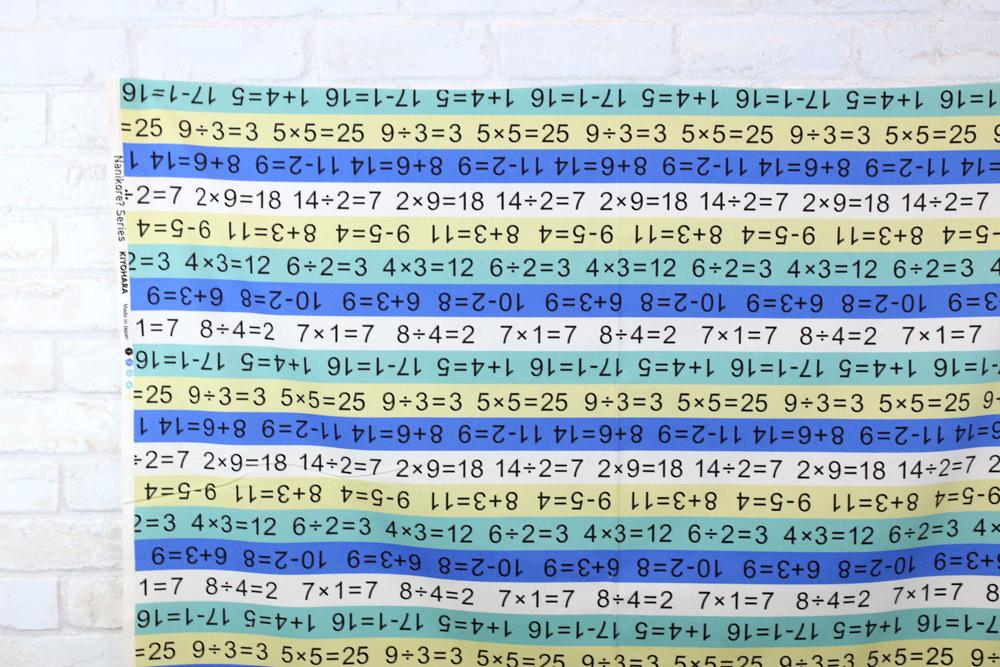 1=16 1+4=5 17-1=16 1+4=5 17-1=16 1+4=5 17-1=16 1+4=5 17-1=16
=25 9÷3=3 5×5=25 9÷3=3 5×5=25 9÷3=3 5×5=25 9÷3=3 5×5=25 9
=14 11-2=9 8+6=14 11-2=9 8+6=14 11-2=9 8+6=14 11-2=9 8+6=14 1
÷2=7 2×9=18 14÷2=7 2×9=18 14÷2=7 2×9=18 14÷2=7 2×9=18 14÷2=7
-5=4 8+3=11 9-5=4 8+3=11 9-5=4 8+3=11 9-5=4 8+3=11 9-5=4
2=3 4×3=12 6÷2=3 4×3=12 6÷2=3 4×3=12 6÷2=3 4×3=12 6÷2=3 4
3=9 10-2=8 6+3=9 10-2=8 6+3=9 10-2=8 6+3=9 10-2=8 6+3=9
1=7 8÷4=2 7×1=7 8÷4=2 7×1=7 8÷4=2 7×1=7 8÷4=2 7×1=7
-1=16 1+4=5 17-1=16 1+4=5 17-1=16 1+4=5 17-1=16 1+4=5 17-1=16
=25 9÷3=3 5×5=25 9÷3=3 5×5=25 9÷3=3 5×5=25 9÷3=3 5×5=25 9÷
6=14 11-2=9 8+6=14 11-2=9 8+6=14 11-2=9 8+6=14 11-2=9 8+6=14 1
÷2=7 2×9=18 14÷2=7 2×9=18 14÷2=7 2×9=18 14÷2=7 2×9=18 14÷2=7 2
9-5=4 8+3=11 9-5=4 8+3=11 9-5=4 8+3=11 9-5=4 8+3=11 9-5=4
2=3 4×3=12 6÷2=3 4×3=12 6÷2=3 4×3=12 6÷2=3 4×3=12 6÷2=3 4×
+3=9 10-2=8 6+3=9 10-2=8 6+3=9 10-2=8 6+3=9 10-2=8 6+3=9
1=7 8÷4=2 7×1=7 8÷4=2 7×1=7 8÷4=2 7×1=7 8÷4=2 7×1=7 8
-1=16 1+4=5 17-1=16 1+4=5 17-1=16 1+4=5 17-1=16 1+4=5 17-1=16
=25 9÷3=3 5×5=25 9÷3=3 5×5=25 9÷3=3 5×5=25 9÷3=3 5×5=25 9÷
Nanikore? Series KIYOHARA Made in Japan